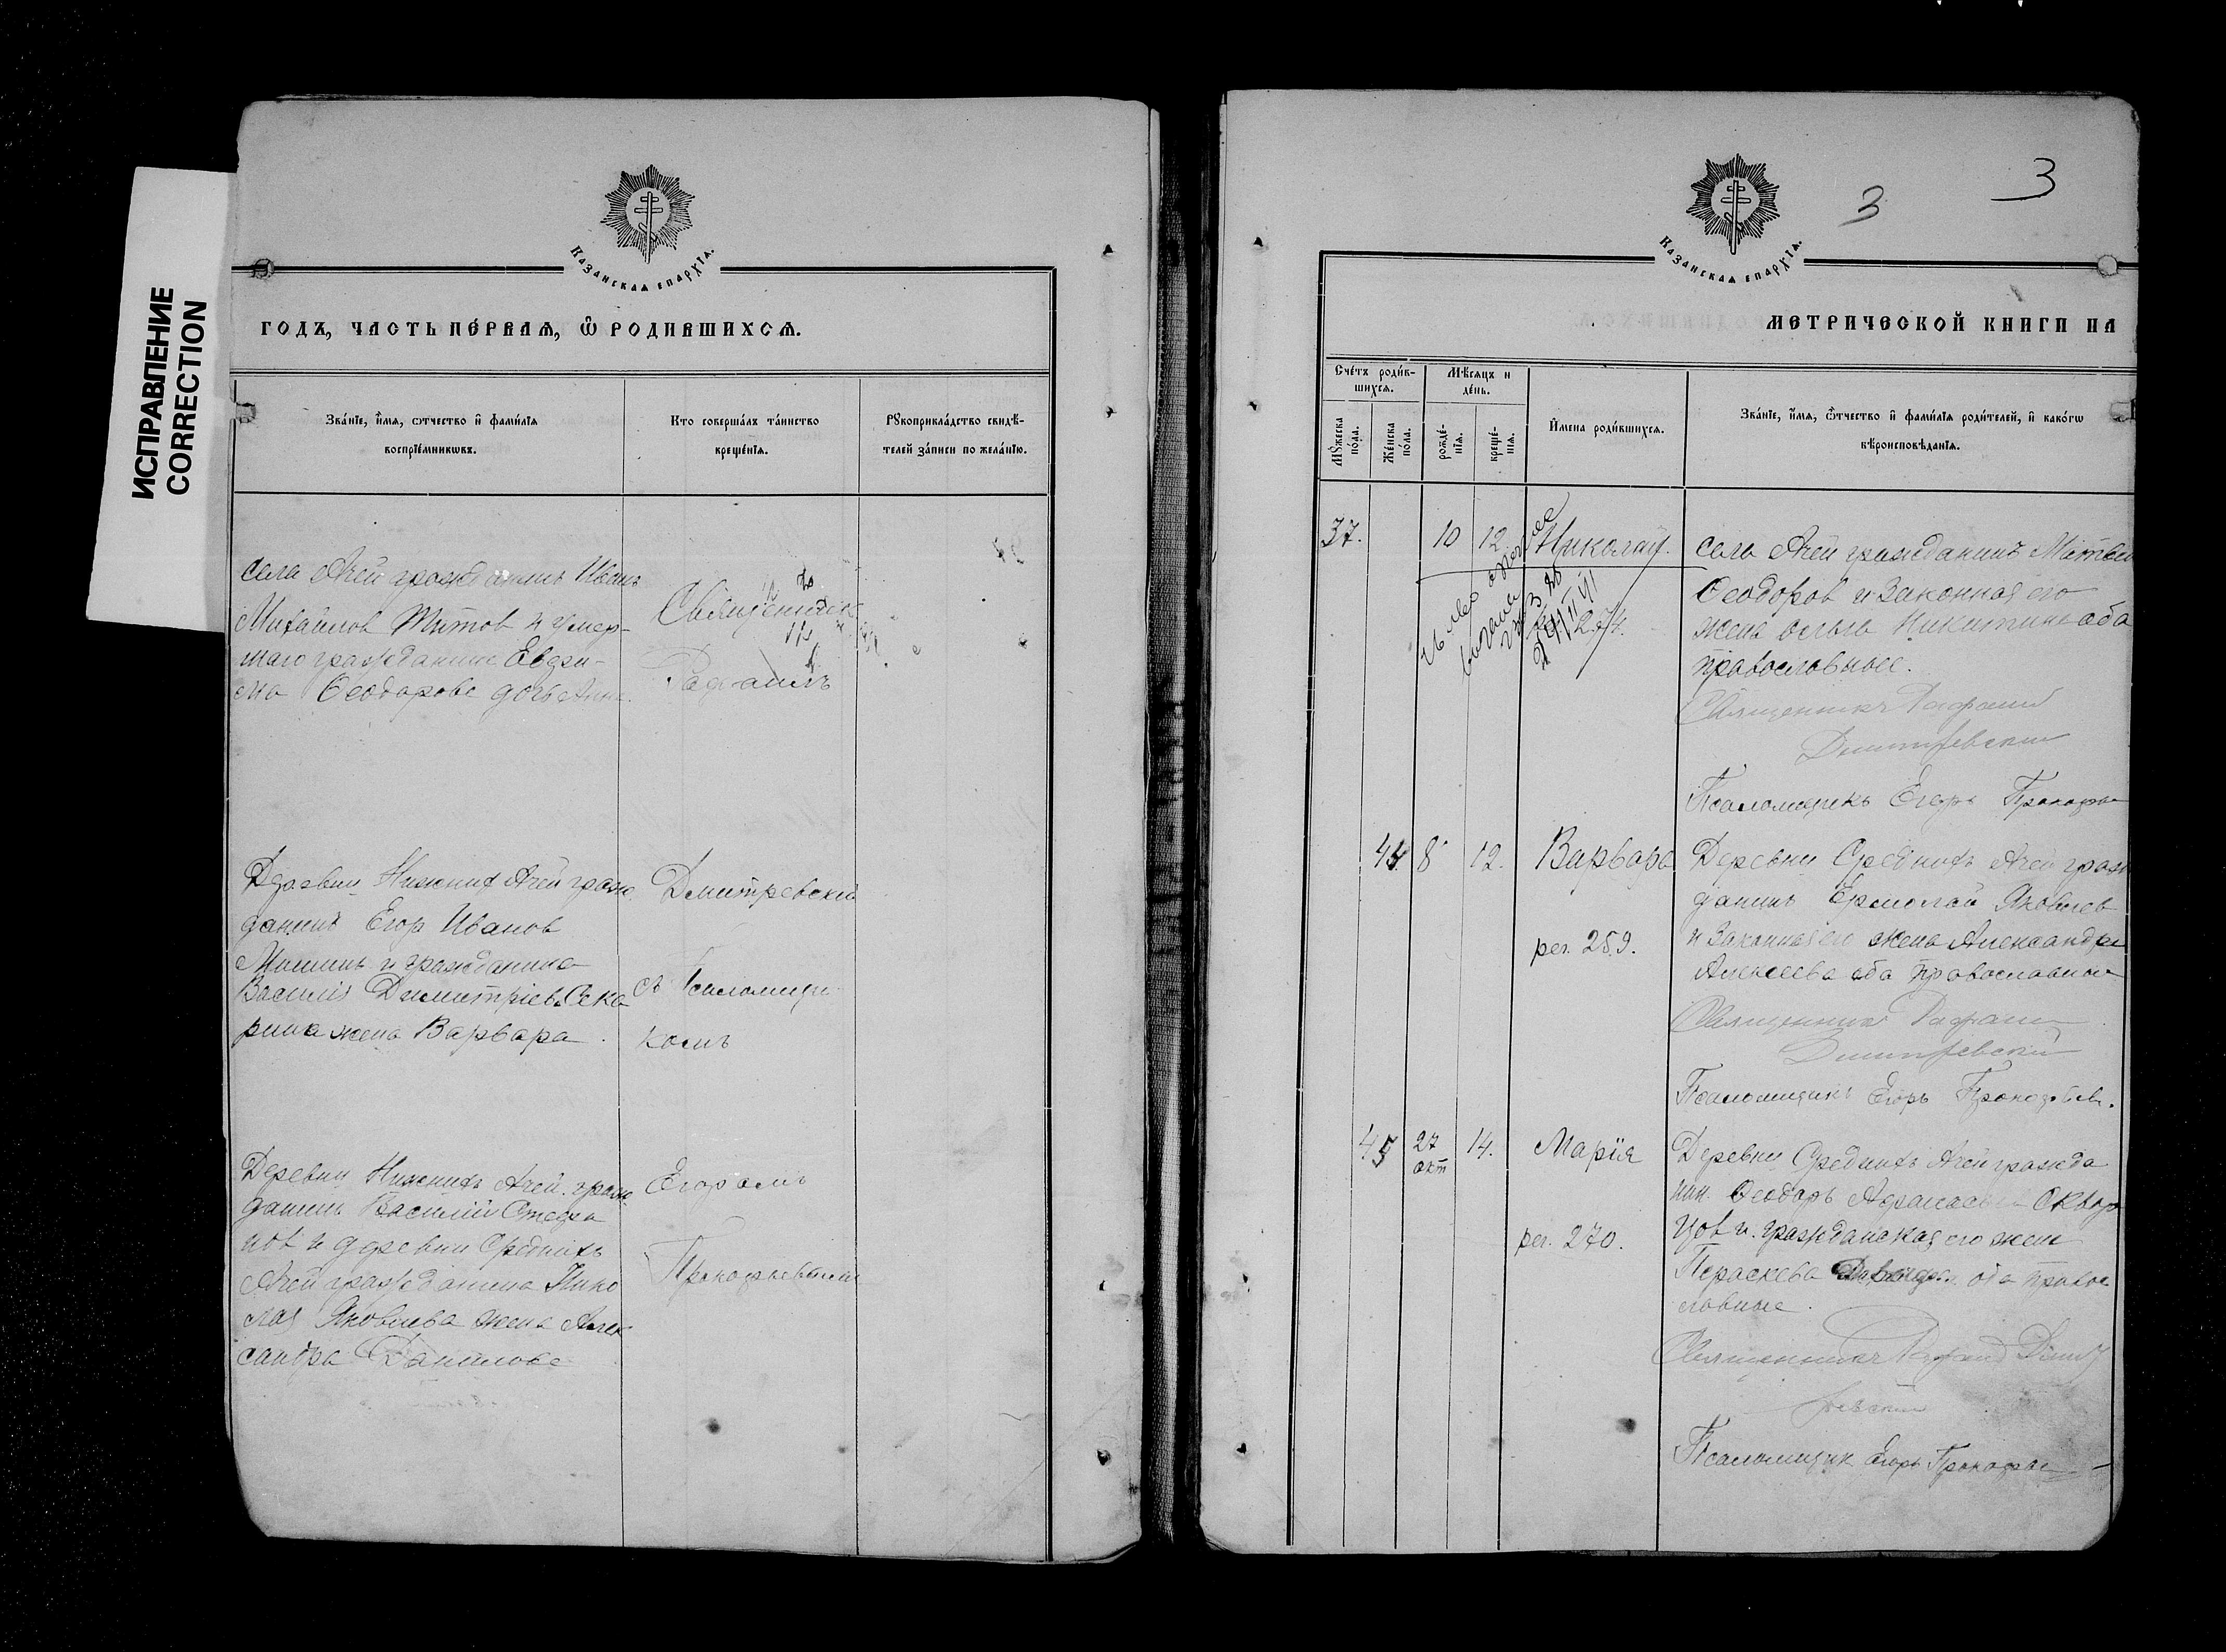 ИСПРАВЛЕНИЕ
CORRECTION
КАЗАНСКАЯ ЕПАРХІЯ.
ГОДЪ, ЧАСТЬ ПЕ́РВАЯ, Ѿ РОДИВШИХСЯ.
Зва́нїе, и҆́мѧ, ѻтчество и҆ фами́лїѧ
воспрїе́мникѡвъ.
Кто соверша́лъ та́инство
креще́нїѧ.
Рꙋкоприкла́дство свидѣ́-
телей за́писи по жела́нїю.
села Ачей гражданинъ Иванъ
Михаилов Титов и умер-
шаго гражданина Евдки-
ма Ѳеодорова дочь Анна.
Священник
Рафаилъ
Деревни Нижнихъ Ачей граж
данинъ Егор Иванов
и гражданина
Василія Димитріева Сека
рина жена Варвара.
Дмитревскій
съ Псаломщи
комъ
Деревни Нижнихъ Ачей граж
данинъ Василій Стефа
нов и деревни Среднихъ
Ачей гражданина Нико
лая Яковлева жена Алек
сандра Данилова
Егоромъ
Прокофьевымъ
КАЗАНСКАЯ ЕПАРХІЯ.
3
3
МЕТРИЧЕСКОЙ КНИГИ НА
Сче́тъ роди́в-
шихсѧ.
Мѣ́сѧцъ и
де́нь.
Мꙋ́жеска
по́ла.
Же́нска
по́ла.
рожде́-
нїѧ.
креще́-
нїѧ.
И҆мена роди́вшихсѧ.
Зва́нїе, и҆́мѧ, ѻ҆́тчество и҆ фами́лїѧ роди́телей, и҆ како́гѡ
вѣроисповѣ́данїѧ.
37.
10
12
Николай.
274.
села Ачей гражданинъ Матвей
Ѳеодоров и законная его
жена Ольга Никитина оба
православные.
Священникъ Рафаил
Дмитревский
Псаломщикъ Егоръ Прокофьев
44
8
12.
Варвара
рег. 259.
Деревни Среднихъ Ачей граж
данинъ Ермолай Яковлев
и законная его жена Александра
Алексеева оба православные
Священник Рафаил
Дмитревский
Псаломщикъ Егоръ Прокофьев.
45
27
окт
14.
Марїя
рег. 270.
Деревни Среднихъ Ачей гражда
нин Ѳеодоръ Афанасьев Сквор
цов и гражданская его жена
Параскева оба правос
лавные.
Священник Рафаил Дмит
ревский
Псаломщик Егоръ Прокофьев